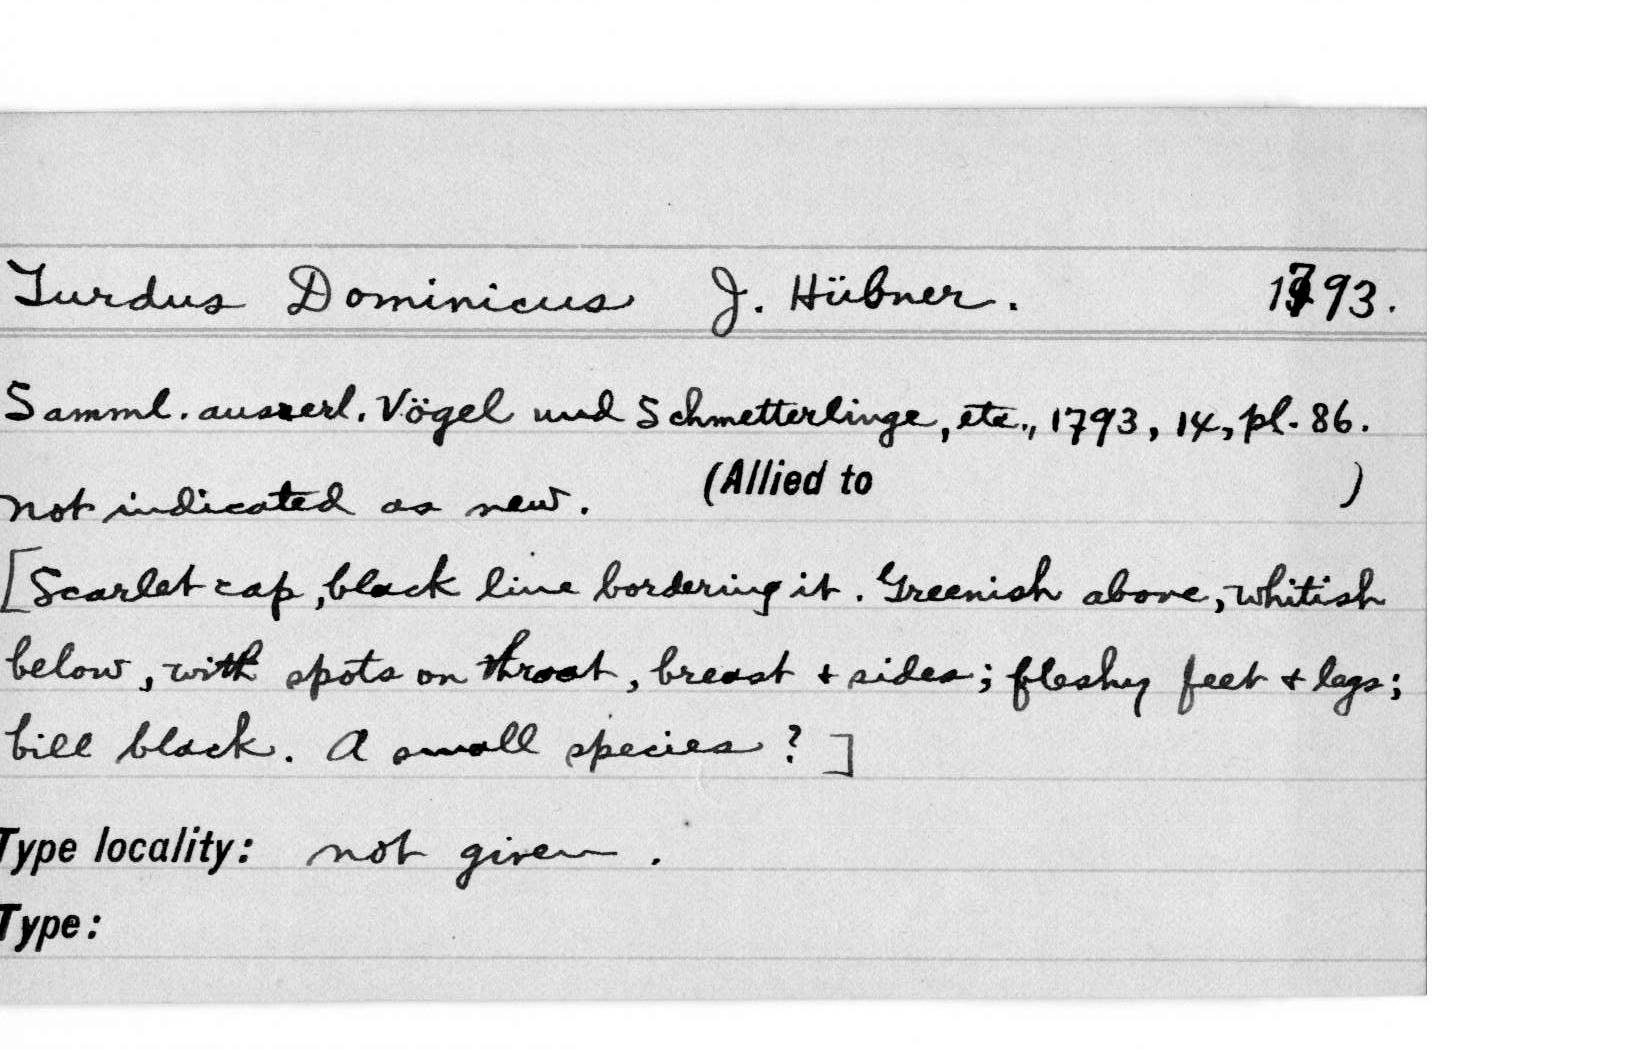 Turdus Dominicus J. Hübner. 1793.
Samml. auserl. Vögel und Schmetterlinge, etc., 1793, 14, pl. 86.
not indicated as new. (Allied to )
[Scarlet cap, black line bordering it. Greenish above, whitish
below, with spots on throat, breast + sides; fleshy feet + legs;
bill black. A small species?]
Type locality: not given.
Type: